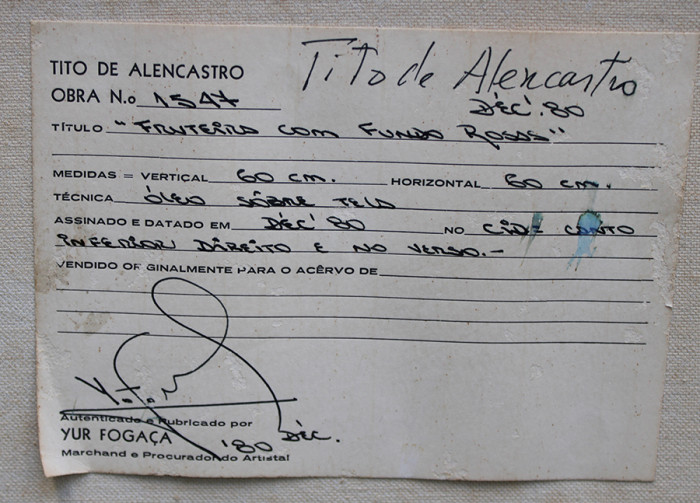 TITO DE ALENCASTRO Tito de Alencastro
OBRA N.o 1547 DÉC'.80
TÍTULO "FRUTEIRA COM FUNDO ROSAS"
MEDIDAS = VERTICAL 60 cm. HORIZONTAL 60 cm.
TÉCNICA ÓLEO SÔBRE TELA
ASSINADO E DATADO EM DÉC' 80 NO CANTO
INFERIOR DIREITO E NO VERSO.-
VENDIDO OR GINALMENTE PARA O ACÊRVO DE
Autenticado e Rubricado por
YUR FOGAÇA '80 DÉC.
Marchand e Procurador do Artista!